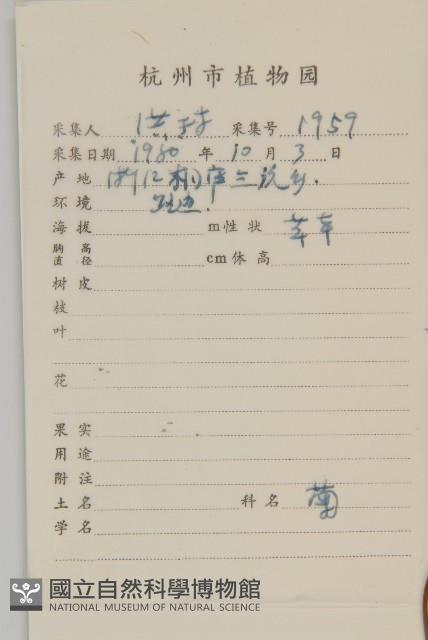 杭州市植物园
采集人 洪林 采集号 1959
采集日期 1980 年 10 月 3 日
产地 浙江桐庐兰说乡.
环境 路边.
海拔 m性状 草本
胸高直径 cm体高
树皮
枝
叶
花
果实
用途
附注
土名 科名 菊
学名
國立自然科學博物館
NATIONAL MUSEUM OF NATURAL SCIENCE